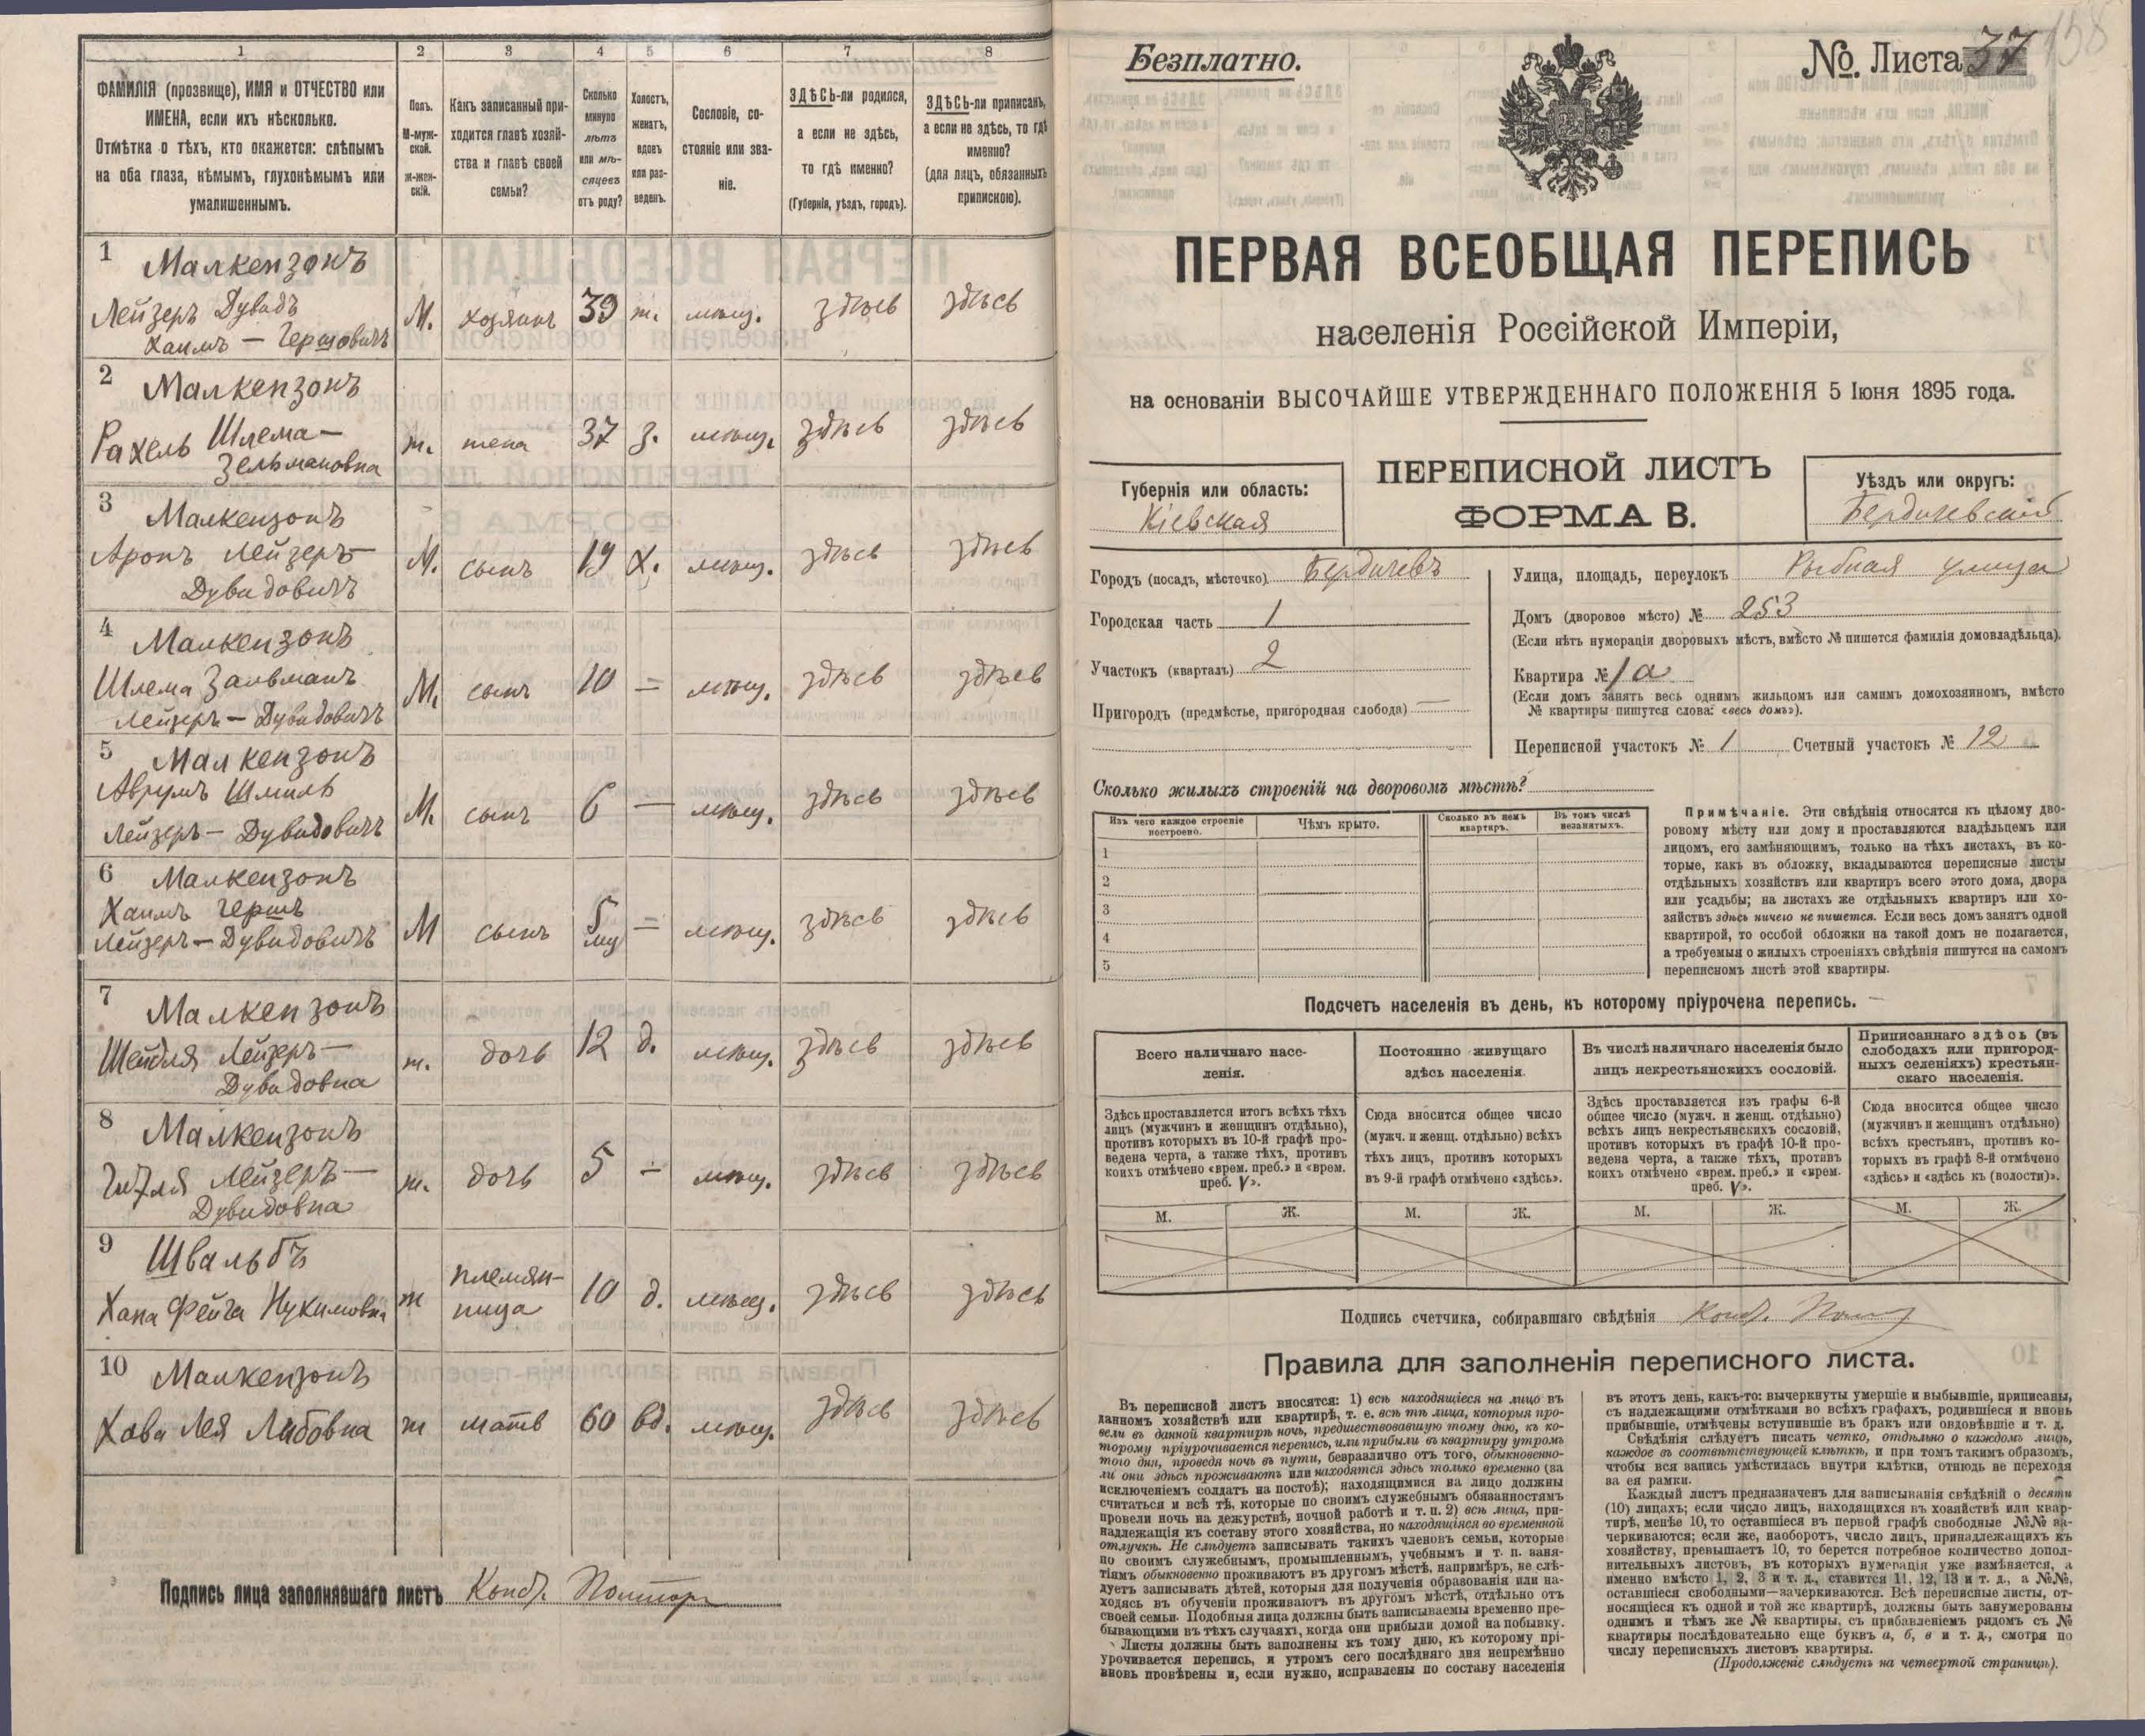 1 2 3 4 5 6 7 8
ФАМИЛІЯ (прозвище), ИМЯ и ОТЧЕСТВО или
ИМЕНА, если ихъ нѣсколько.
Отмѣтка о тѣхъ, кто окажется: слѣпымъ
на оба глаза, нѣмымъ, глухонѣмымъ или
умалишеннымъ.
Полъ.
М-муж-
ской.
Ж-жен-
скій.
Какъ записанный при-
ходится главѣ хозяй-
ства и главѣ своей
семьи?
Сколько
минуло
лѣтъ
или мѣ-
сяцевъ
отъ роду?
Холостъ,
женатъ,
вдовъ
или раз-
веденъ.
Сословіе, со-
стояніе или зва-
ніе.
ЗДѢСЬ-ли родился,
а если не здѣсь,
то гдѣ именно?
(Губернія, уѣздъ, городъ).
ЗДѢСЬ-ли приписанъ,
а если не здѣсь, то гдѣ
именно?
(для лицъ, обязанныхъ
припискою).
1 Малкензонъ
Лейзеръ Дувидъ
Хаимъ — Гершовичъ
М. хозяинъ 39 ж. мѣщ. здѣсь здѣсь
2 Малкензонъ
Рахель Шлема—
Зельмановна
ж. жена 37 з. мѣщ. здѣсь здѣсь
3 Малкензонъ
Аронъ Лейзеръ—
Дувидовичъ
М. сынъ 19 х. мѣщ. здѣсь здѣсь
4 Малкензонъ
Шлема Зальманъ
Лейзеръ — Дувидовичъ
М. сынъ 10 — мѣщ. здѣсь здѣсь
5 Малкензонъ
Аврумъ Шмиль
Лейзеръ — Дувидовичъ
М. сынъ 6 — мѣщ. здѣсь здѣсь
6 Малкензонъ
Хаимъ Гершъ
Лейзеръ — Дувидовичъ
М сынъ 5 — мѣщ. здѣсь здѣсь
7 Малкензонъ
Шейдля Лейзеръ—
Дувидовна
ж. дочь 12 д. мѣщ. здѣсь здѣсь
8 Малкензонъ
Лейзеръ—
Дувидовна
ж. дочь 5 — мѣщ. здѣсь здѣсь
9 Швальбъ
Хана Фейга Нухимовна
ж племян-
ница
10 д. мѣщ. здѣсь здѣсь
10 Малкензонъ
Хава Лея Либовна
ж мать 60 вд. мѣщ. здѣсь здѣсь
Подпись лица заполнявшаго листъ
Безплатно.
№. Листа 37
158
ПЕРВАЯ ВСЕОБЩАЯ ПЕРЕПИСЬ
населенія Россійской Имперіи,
на основаніи ВЫСОЧАЙШЕ УТВЕРЖДЕННАГО ПОЛОЖЕНІЯ 5 Іюня 1895 года.
ПЕРЕПИСНОЙ ЛИСТЪ
ФОРМА В.
Губернія или область:
Кіевская
Уѣздъ или округъ:
Бердичевскій
Городъ (посадъ, мѣстечко) Бердичевъ
Городская часть 1
Участокъ (кварталъ) 2
Пригородъ (предмѣстье, пригородная слобода) —
Улица, площадь, переулокъ Рыбная улица
Домъ (дворовое мѣсто) № 253
(Если нѣтъ нумераціи дворовыхъ мѣстъ, вмѣсто № пишется фамилія домовладѣльца).
Квартира № 1а
(Если домъ занятъ весь однимъ жильцомъ или самимъ домохозяиномъ, вмѣсто
№ квартиры пишутся слова: «весь домъ»).
Переписной участокъ № 1 Счетный участокъ № 12
Сколько жилыхъ строеній на дворовомъ мѣстѣ?
Изъ чего каждое строеніе
построено.
Чѣмъ крыто.
Сколько въ немъ
квартиръ.
Въ томъ числѣ
незанятыхъ.
1
2
3
4
5
Примѣчаніе. Эти свѣдѣнія относятся къ цѣлому дво-
ровому мѣсту или дому и проставляются владѣльцемъ или
лицомъ, его замѣняющимъ, только на тѣхъ листахъ, въ ко-
торые, какъ въ обложку, вкладываются переписные листы
отдѣльныхъ хозяйствъ или квартиръ всего этого дома, двора
или усадьбы; на листахъ же отдѣльныхъ квартиръ или хо-
зяйствъ здѣсь ничего не пишется. Если весь домъ занятъ одной
квартирой, то особой обложки на такой домъ не полагается,
а требуемыя о жилыхъ строеніяхъ свѣдѣнія пишутся на самомъ
переписномъ листѣ этой квартиры.
Подсчетъ населенія въ день, къ которому пріурочена перепись.
Всего наличнаго насе-
ленія.
Постоянно живущаго
здѣсь населенія.
Въ числѣ наличнаго населенія было
лицъ некрестьянскихъ сословій.
Приписаннаго здѣсь (въ
слободахъ или пригород-
ныхъ селеніяхъ) крестьян-
скаго населенія.
Здѣсь проставляется итогъ всѣхъ тѣхъ
лицъ (мужчинъ и женщинъ отдѣльно),
противъ которыхъ въ 10-й графѣ про-
ведена черта, а также тѣхъ, противъ
коихъ отмѣчено «врем. преб.» и «врем.
преб. V».
Сюда вносится общее число
(мужч. и женщ. отдѣльно) всѣхъ
тѣхъ лицъ, противъ которыхъ
въ 9-й графѣ отмѣчено «здѣсь».
Здѣсь проставляется изъ графы 6-й
общее число (мужч. и женщ. отдѣльно)
всѣхъ лицъ некрестьянскихъ сословій,
противъ которыхъ въ графѣ 10-й про-
ведена черта, а также тѣхъ, противъ
коихъ отмѣчено «врем. преб.» и «врем.
преб. V».
Сюда вносится общее число
(мужчинъ и женщинъ отдѣльно)
всѣхъ крестьянъ, противъ ко-
торыхъ въ графѣ 8-й отмѣчено
«здѣсь» и «здѣсь къ (волости)».
М. Ж. М. Ж. М. Ж. М. Ж.
Подпись счетчика, собиравшаго свѣдѣнія
Правила для заполненія переписного листа.
Въ переписной листъ вносятся: 1) всѣ находящіеся на лицо въ
данномъ хозяйствѣ или квартирѣ, т. е. всѣ тѣ лица, которыя про-
вели въ данной квартирѣ ночь, предшествовавшую тому дню, къ ко-
торому пріурочивается перепись, или прибыли въ квартиру утромъ
того дня, проведя ночь въ пути, безразлично отъ того, обыкновенно-
ли они здѣсь проживаютъ или находятся здѣсь только временно (за
исключеніемъ солдатъ на постоѣ); находящимися на лицо должны
считаться и всѣ тѣ, которые по своимъ служебнымъ обязанностямъ
провели ночь на дежурствѣ, ночной работѣ и т. п. 2) всѣ лица, при-
надлежащія къ составу этого хозяйства, но находящіяся во временной
отлучкѣ. Не слѣдуетъ записывать такихъ членовъ семьи, которые
по своимъ служебнымъ, промышленнымъ, учебнымъ и т. п. заня-
тіямъ обыкновенно проживаютъ въ другомъ мѣстѣ, напримѣръ, не слѣ-
дуетъ записывать дѣтей, которыя для полученія образованія или на-
ходясь въ обученіи проживаютъ въ другомъ мѣстѣ, отдѣльно отъ
своей семьи. Подобныя лица должны быть записываемы временно пре-
бывающими въ тѣхъ случаяхъ, когда они прибыли домой на побывку.
Листы должны быть заполнены къ тому дню, къ которому прі-
урочивается перепись, и утромъ сего послѣдняго дня непремѣнно
вновь провѣрены и, если нужно, исправлены по составу населенія
въ этотъ день, какъ-то: вычеркнуты умершіе и выбывшіе, приписаны,
съ надлежащими отмѣтками во всѣхъ графахъ, родившіеся и вновь
прибывшіе, отмѣчены вступившіе въ бракъ или овдовѣвшіе и т. д.
Свѣдѣнія слѣдуетъ писать четко, отдѣльно о каждомъ лицѣ,
каждое въ соотвѣтствующей клѣткѣ, и при томъ такимъ образомъ,
чтобы вся запись умѣстилась внутри клѣтки, отнюдь не переходя
за ея рамки.
Каждый листъ предназначенъ для записыванія свѣдѣній о десяти
(10) лицахъ; если число лицъ, находящихся въ хозяйствѣ или квар-
тирѣ, менѣе 10, то оставшіеся въ первой графѣ свободные №№ за-
черкиваются; если же, наоборотъ, число лицъ, принадлежащихъ къ
хозяйству, превышаетъ 10, то берется потребное количество допол-
нительныхъ листовъ, въ которыхъ нумерація уже измѣняется, а
именно вмѣсто 1, 2, 3 и т. д., ставится 11, 12, 13 и т. д., а №№,
оставшіеся свободными—зачеркиваются. Всѣ переписные листы, от-
носящіеся къ одной и той же квартирѣ, должны быть занумерованы
однимъ и тѣмъ же № квартиры, съ прибавленіемъ рядомъ съ №
квартиры послѣдовательно еще буквъ а, б, в и т. д., смотря по
числу переписныхъ листовъ квартиры.
(Продолженіе слѣдуетъ на четвертой страницѣ).